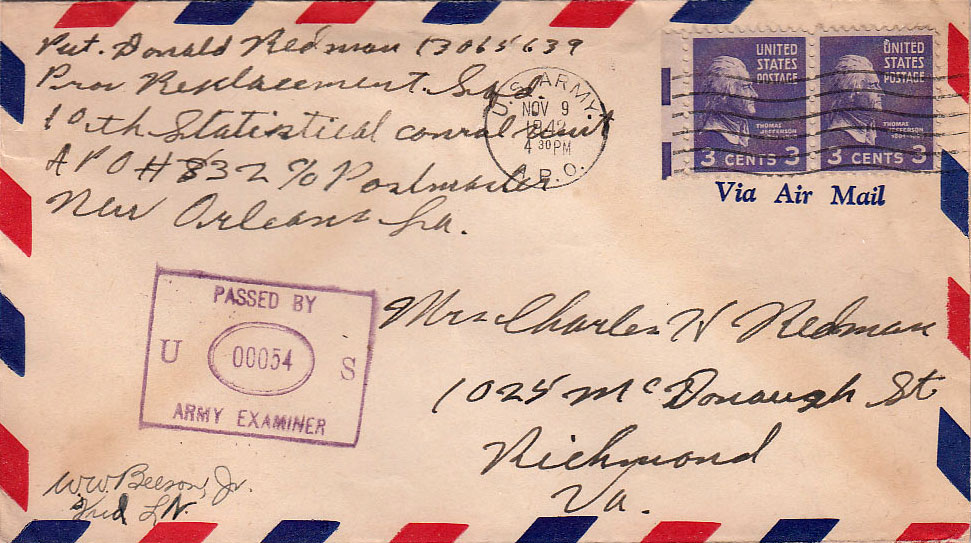 Pvt. Donald Redman 13065639
Prov Replacement. Sqd.
10th Statistical conral unit
APO # 832 c/o Postmaster
New Orleans La.
U.S. ARMY.
NOV 9
1942
4 30 PM
A.P.O.
UNITED
STATES
POSTAGE
THOMAS
JEFFERSON
3 CENTS 3
UNITED
STATES
POSTAGE
THOMAS
JEFFERSON
3 CENTS 3
Via Air Mail
PASSED BY
U 00054 S
ARMY EXAMINER
Mrs Charles W Redman
1025 McDonough St
Richmond
Va.
W.W. Beeson, Jr.